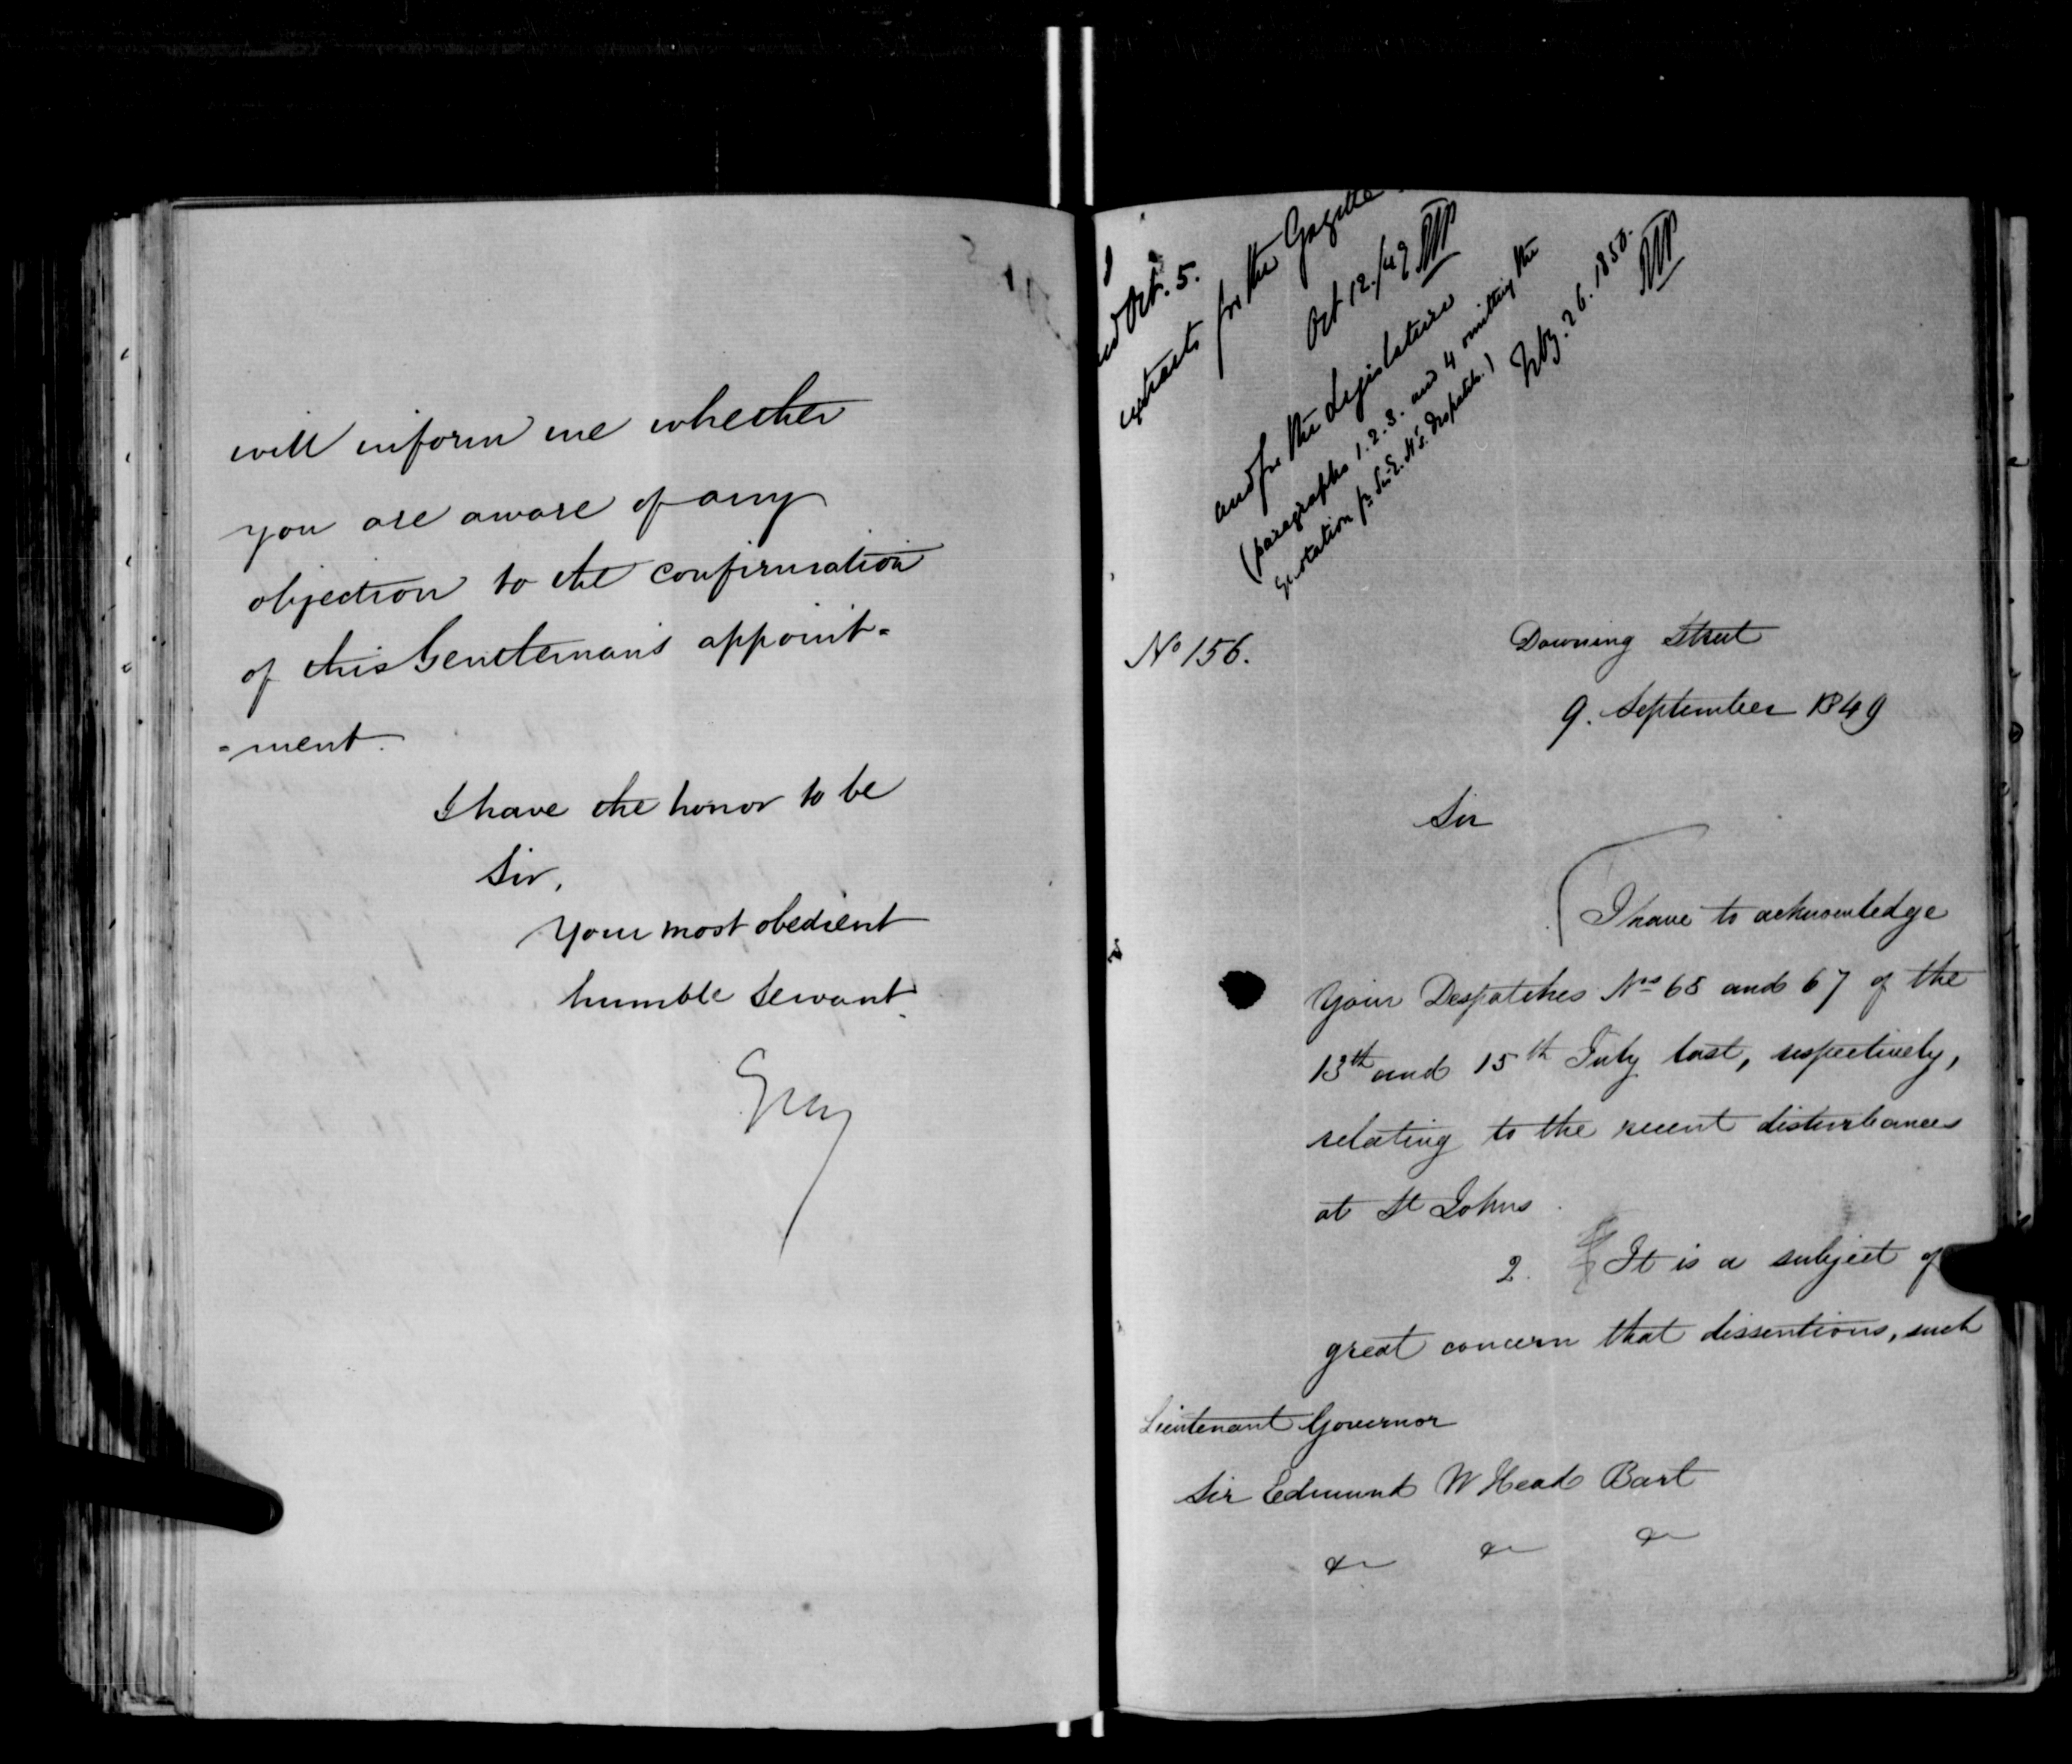 will inform me whether
you are aware of any
objection to the confirmation
of this Gentleman's appoint=
=ment.
I have the honor to be
Sir,
Your most obedient
humble Servant.
Grey
Oct. 5.
extracts for the Gazette
Oct 12./49
and for the Legislature
(paragraphs 1. 2. 3. and 4 omitting the
quotation fr Sir E. H's. Despatch.)
Feby. 26. 1850.
No 156.
Downing Street
9. September 1849
Sir
I have to acknowledge
Your Despatches Nos 65 and 67 of the
13th and 15th July last, respectively,
relating to the recent disturbances
at St Johns.
2. It is a subject of
great concern that dissentions, such
Lieutenant Governor
Sir Edmund W Head Bart
&c &c &c